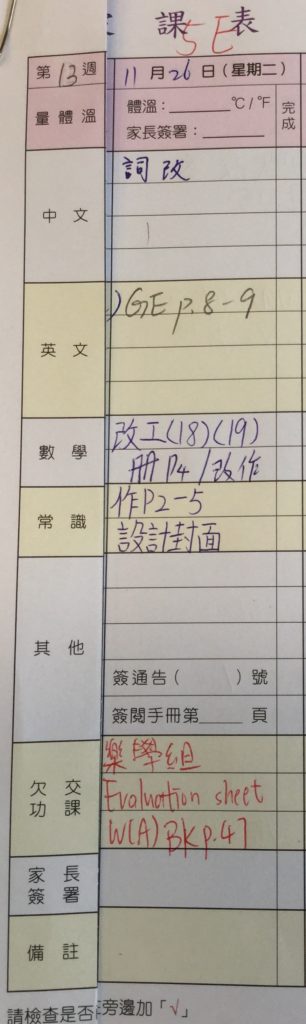 課 表
5E
第13週 11月26日(星期二)
量體溫 體溫：______°C/°F 完成
家長簽署：______
中文 詞改
英文 GE p.8-9
數學 改工(18)(19)
冊P4/改作
常識 作P2-5
設計封面
其他
簽通告( )號
簽閱手冊第____頁
欠交功課 樂學組
Evaluation sheet
W(A) BK p.47
家長簽署
備註
請檢查是否 旁邊加「√」